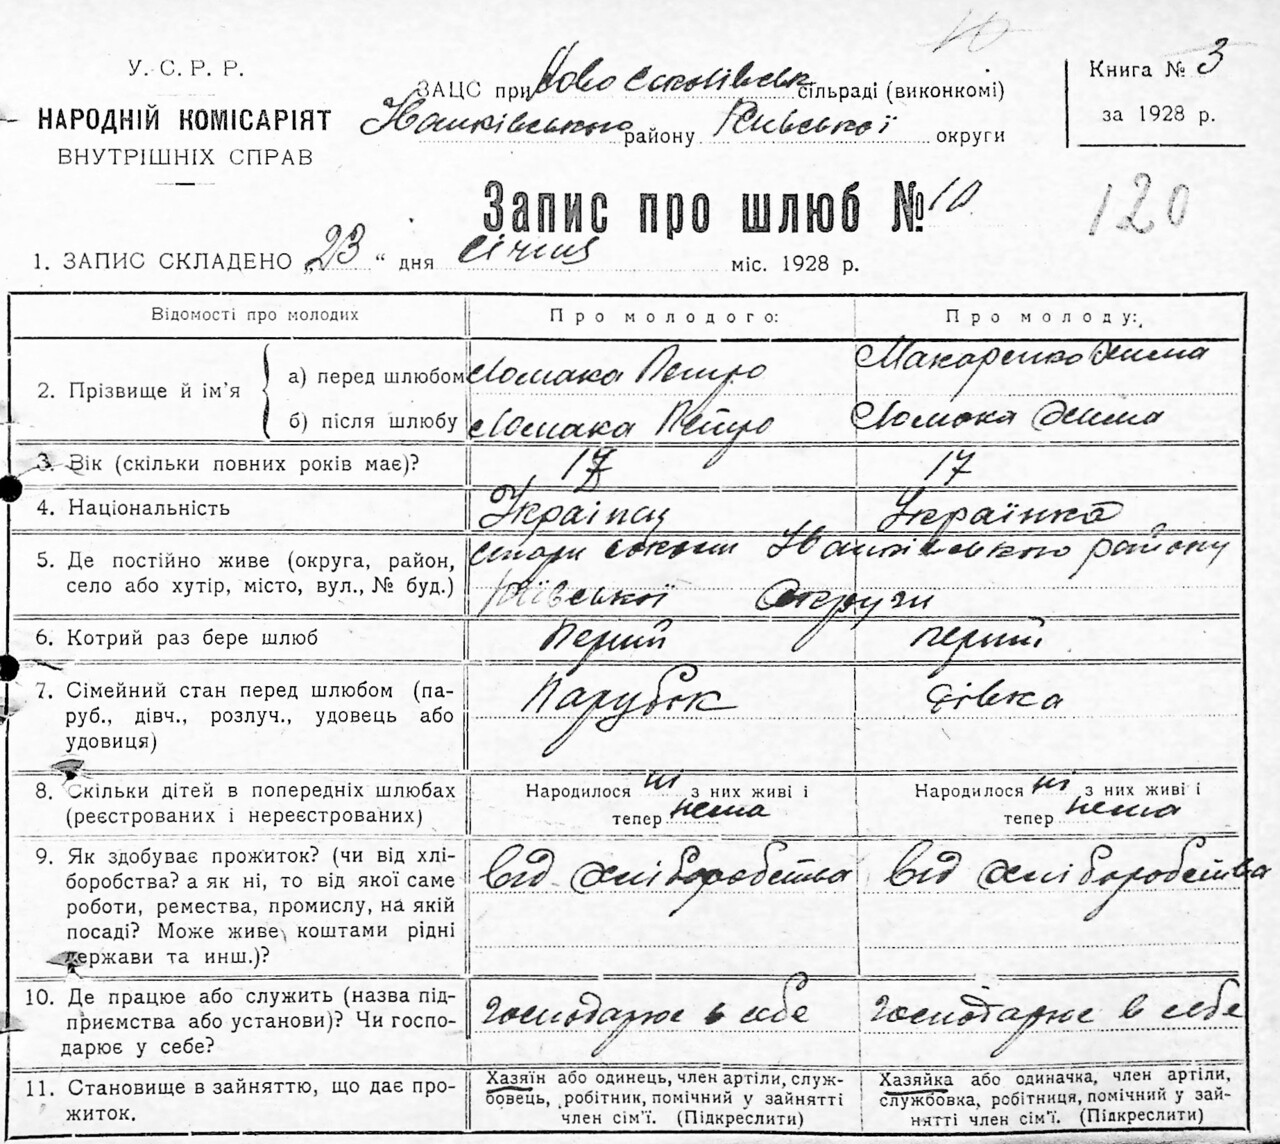 10
У. С. Р. Р.
НАРОДНІЙ КОМІСАРІЯТ
ВНУТРІШНІХ СПРАВ
ЗАЦС при Ново Соколівськ сільраді (виконкомі)
Іванківського району Київської округи
Книга № 3
за 1928 р.
Запис про шлюб № 10
120
1. ЗАПИС СКЛАДЕНО „23“ дня січня міс. 1928 р.
Відомості про молодих Про молодого: Про молоду:
2. Прізвище й ім’я а) перед шлюбом Ломака Петро Макаренко Хима
б) після шлюбу Ломака Петро Ломака Хима
3. Вік (скільки повних років має)? 17 17
4. Національність Українц Українка
5. Де постійно живе (округа, район, село або хутір, місто, вул., № буд.) Стари Соколи Іванківського району
Київської Округи
6. Котрий раз бере шлюб Перший перший
7. Сімейний стан перед шлюбом (па-
руб., дівч., розлуч., удовець або
удовиця) Парубок дівка
8. Скільки дітей в попередніх шлюбах
(реєстрованих і нереєстрованих)
Народилося ні з них живі і
тепер нема
Народилося ні з них живі і
тепер нема
9. Як здобуває прожиток? (чи від хлі-
боробства? а як ні, то від якої саме
роботи, ремества, промислу, на якій
посаді? Може живе коштами рідні
держави та инш.)?
від хліборобства від хліборобства
10. Де працює або служить (назва під-
приємства або установи)? Чи госпо-
дарює у себе?
господарює в себе господарює в себе
11. Становище в зайняттю, що дає про-
житок.
Хазяїн або одинець, член артіли, служ-
бовець, робітник, помічний у зайнятті
член сім’ї. (Підкреслити)
Хазяйка або одиначка, член артіли,
службовка, робітниця, помічний у зай-
нятті член сім’ї. (Підкреслити)